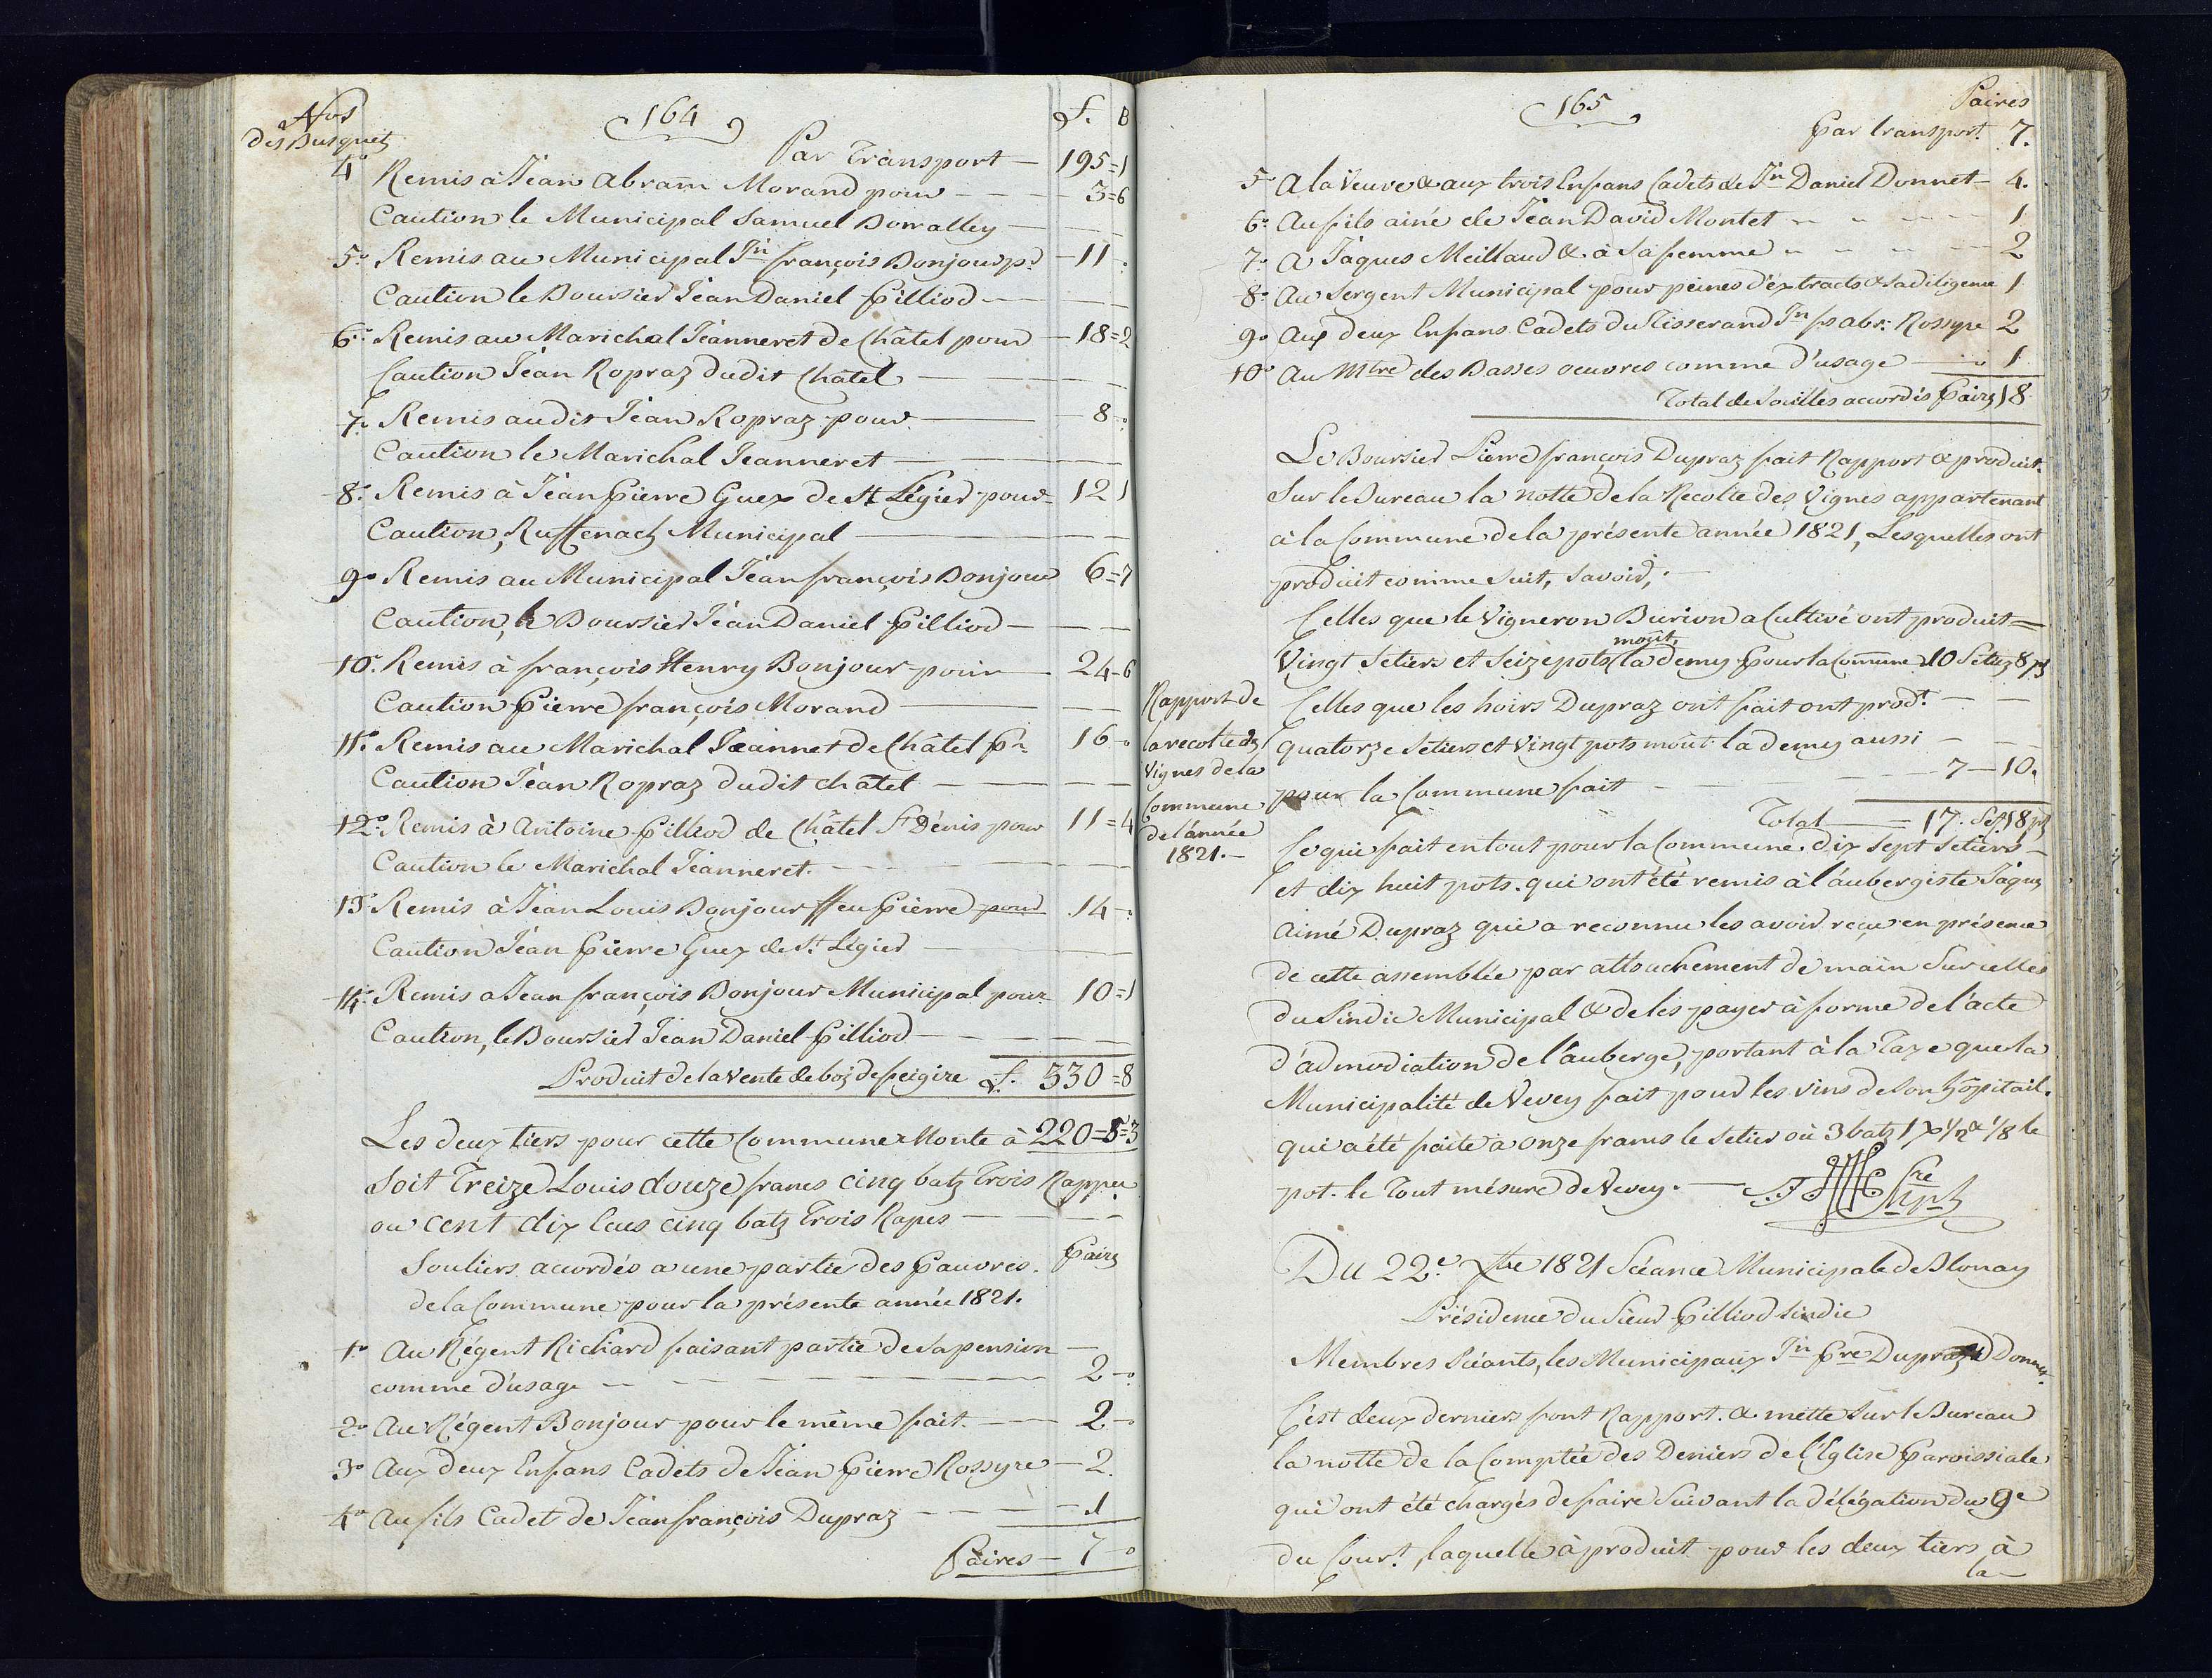 Nos
des Busquets
164
f. B
Par Transport — 195=1
4° Remis à Jean Abram Morand pour — 3=6
Caution le Municipal Samuel Dorvalley —
5° Remis au Municipal Jn françois Bonjour pr — 11 "
Caution le Boursier Jean Daniel Pilliod —
6° Remis au Marichal Jeanneret de Châtel pour — 18=2
Caution Jean Ropraz dudit Châtel —
7° Remis audit Jean Ropraz pour — 8 -"
Caution le Marichal Jeanneret —
8° Remis à Jean Pierre Guex de St Légier pour = 12 1
Caution, Ruffenach Municipal —
9° Remis au Municipal Jean françois Bonjour 6=7
Caution, le Boursier Jean Daniel Pilliod —
10° Remis à françois Henry Bonjour pour — 24-6
Caution Pierre françois Morand —
11° Remis au Marichal Jeannet de Châtel pr 16 -"
Caution Jean Ropraz dudit châtel —
12° Remis à Antoine Pilliod de Châtel St Dénis pour 11=4
Caution le Marichal Jeanneret. —
13° Remis à Jean Louis Bonjour ffeu Pierre pour 14 -"
Caution Jean Pierre Guex de St Légier —
14° Remis a Jean françois Bonjour Municipal pour 10=1
Caution, le Boursier Jean Daniel Pilliod —
Produit de la vente de bois de feigire f. 330=8
Les deux tiers pour cette Commune Monte à 220=5=3
Soit Treize Louis douze francs cinq batz Trois Rappes
ou cent dix Ecus cinq batz Trois Rapes —
Souliers accordés a une partie des Pauvres. Paires
de la Commune pour la présente année 1821.
1° Au Régent Richard faisant partie de sa pension —
comme d'usage — 2 -"
2° Au Régent Bonjour pour le même fait. — 2 -"
3° Aux deux Enfans Cadets de Jean Pierre Rossyre — 2.
4° Au fils Cadet de Jean françois Dupraz — 1
Paires — 7 -"
165
Paires
Par transport. 7.
5° A la Veuve & aux trois Enfans Cadets de Jn Daniel Donnet — 4.
6° Au fils ainé de Jean David Montet — 1
7° A Jaques Meillaud & à Sa femme — 2
8° Au Sergent Municipal pour peines d'extracts & sa diligence 1
9° Aux deux Enfans Cadets du Tisserand Jn fs abr: Rossyre 2
10° Au Mtre des Basses oeuvres comme d'usage — 1
Total de Souilles accordés Paires 18
Le Boursier Pierre françois Dupraz fait Rapport & produit
Sur le Bureau la notte de la Recolte des Vignes appartenant
à la Commune de la présente année 1821, Lesquelles ont
produit comme suit, Savoir, . —
Celles que le Vigneron Burion a Cultivé ont produit =
moût,
Vingt Setiers et Seize pots (la demy Pour la Commune 10 Setiez 8 ps
Rapport de
la recolte des
Vignes de la
Commune
de l'année
1821. —
Celles que les hoirs Dupraz ont fait ont prodt —
quatorze Setiers et Vingt pots moût la demy aussi —
pour la Commune fait — 7 — 10.
Total = 17. Set 18 ps
Ce qui fait en tout pour la Commune. dix Sept Setiers —
et dix huit pots. qui ont été remis à l'aubergiste Jaques
Aimé Dupraz qui a reconnu les avoir reçu en présence
de cette assemblée par attouchement de main Sur celles
du Sindic Municipal & de les payer à forme de l'acte
d'admodiation de l'auberge, portant à la Taxe que la
Municipalité de Vevey fait pour les vins de Son hôpitail.
qui a été faite à onze francs le Setier où 3 batz 1 x 1/2 & 1/8 le
pot. le Tout mésure de Vevey. —
Du 22e Xbre 1821 Séance Municipale de Blonay
Présidence du Sieur Pilliod Sindic
Membres Séants, les Municipaux Jn Pre Dupraz & Donnet.
Cest deux derniers font Rapport. & mette Sur le Bureau
la notte de la Comptée des Deniers de l'Eglise Paroissiale
qui ont été chargés de faire Suivant la délégation du 9e
du Court, laquelle à produit pour les deux tiers à
la —